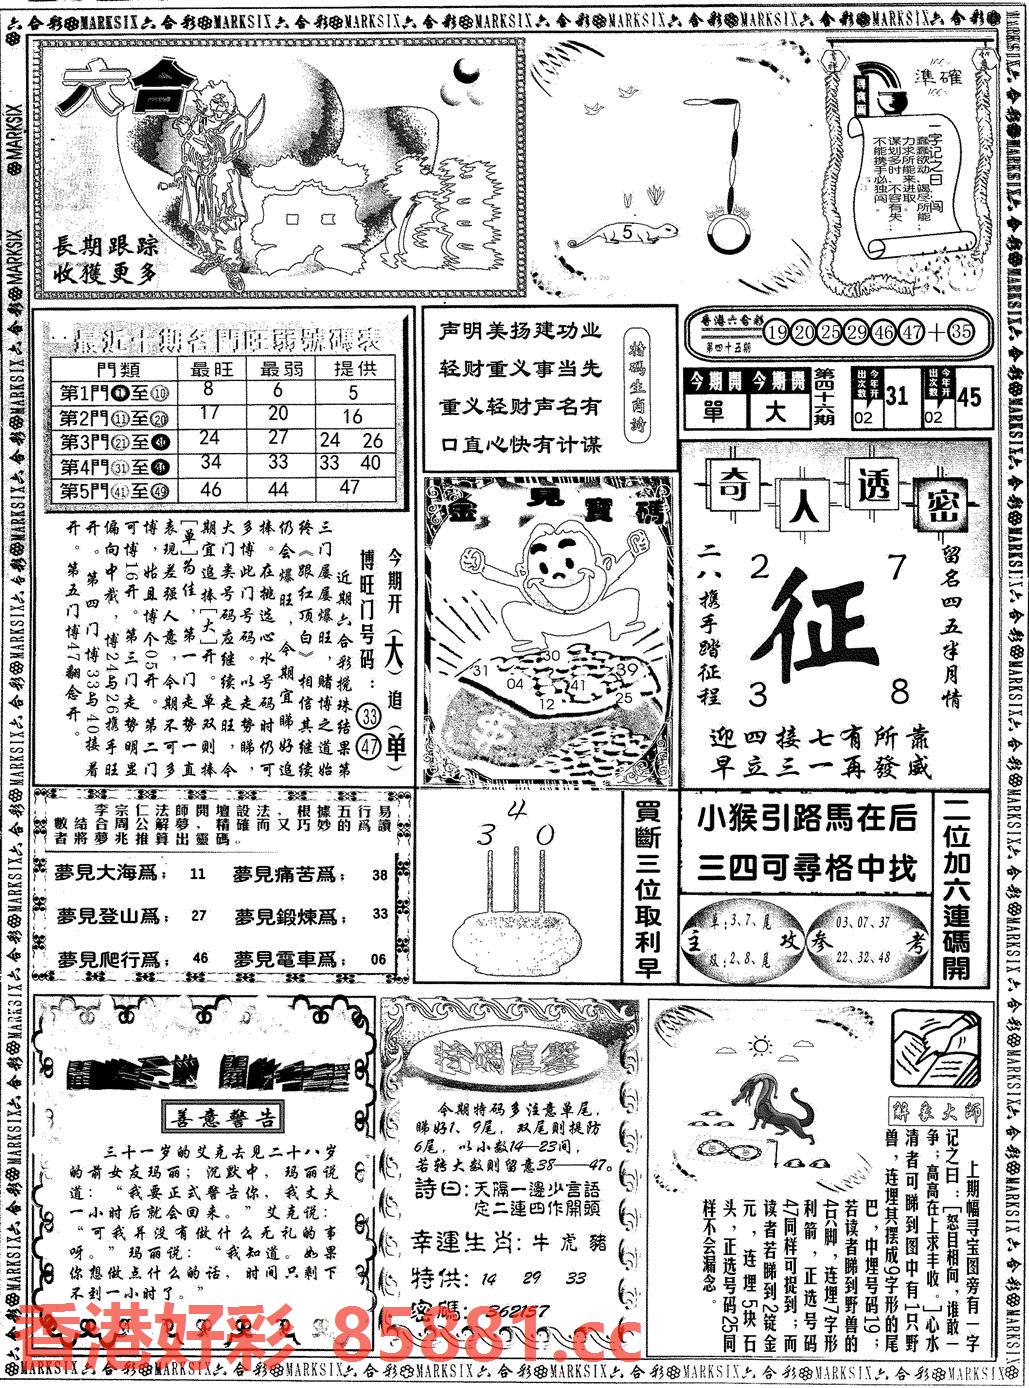 六合
長期跟踪
收獲更多
5
準確
一字记之曰:闯
蠢蠢欲动、竭尽所能;
力求所能来进取。
谋划多时、不容有失;
不能携手必独闯。
最近十期各門旺弱號碼表
門類 最旺 最弱 提供
第1門①至⑩ 8 6 5
第2門⑪至⑳ 17 20 16
第3門㉑至㉚ 24 27 24 26
第4門㉛至㊵ 34 33 33 40
第5門㊶至㊾ 46 44 47
今期开(大)追(单)
博旺门号码:㉝㊼
近期六合彩搅珠结果第
三门屡屡爆旺,赌博之道始
终《跟红顶白》相信其继续
仍会爆旺,今期宜睇好追
捧。在挑选心水号码时仍可
多博此门号码。以走势睇,
大门类号码应继续走旺,今
期宜追捧[大]开。单双则捧
[单]为佳,第一门走势一直
表现差强人意,今期不可多
博,姑且博个05开。第二门
可博16开。第三门走势明显
偏向中截,博24与26携手旺
开。第四门博33与40接着
开。第五门博47翻念开。
声明美扬建功业
轻财重义事当先
重义轻财声名有
口直心快有计谋
特码生肖詩
香港六合彩
第四十五期
19 20 25 29 46 47 + 35
今期開 單
今期開 大
第四十六期
今年开出次数 02 31
今年开出次数 02 45
金見寶碼
31 30 39
04 41 25
12
$
奇人透密
二八携手踏征程
2 7
征
3 8
留名四五半月情
迎四接七有所靠
早立三一再發威
李宗仁法師開壇設法,根據五行易
數結合周公解夢,精確而又巧妙的爲讀
者將夢兆推算出靈碼。
夢見大海爲; 11 夢見痛苦爲; 38
夢見登山爲; 27 夢見鍛煉爲; 33
夢見爬行爲; 46 夢見電車爲; 06
3 4 0
買斷三位取利早
小猴引路馬在后
三四可尋格中找
主攻
单:3、7、尾
双:2、8、尾
参考
03、07、37
22、32、48
二位加六連碼開
善意警告
三十一岁的艾克去见二十八岁
的前女友玛丽;沉默中,玛丽说
道:“我要正式警告你,我丈夫
一小时后就会回来。”艾克说:
“可我并没有做什么无礼的事
呀。”玛丽说:“我知道。如果
你想做点什么的话,时间只剩下
不到一小时了。”
特碼直擊
今期特码多注意单尾,
睇好1、9尾,双尾则提防
6尾,以小数14—23间,
若转大数则留意38——47。
詩曰:天隔一邊少言語
定二連四作開頭
幸運生肖:牛 虎 豬
特供: 14 29 33
密碼: 362157
解象大師
上期幅寻宝图旁有一字
记之曰:[怒目相向,谁敢一
争;高高在上求丰收。]心水
清者可睇到图中有1只野
兽,连埋其摆成9字形的尾
巴,中埋号码19;
若读者睇到野兽的
4只脚,连埋7字形
利箭,正选号码
47同样可捉到;而
读者若睇到2锭金
元,连埋5块石
头,正选号码25同
样不会漏念。
香港好彩 85881.cc